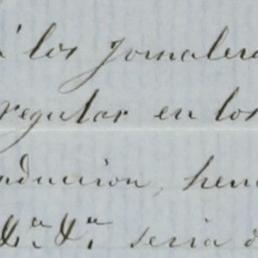 á los jornalero
regular en los
nduccion, hem
&ª. &ª. seria d